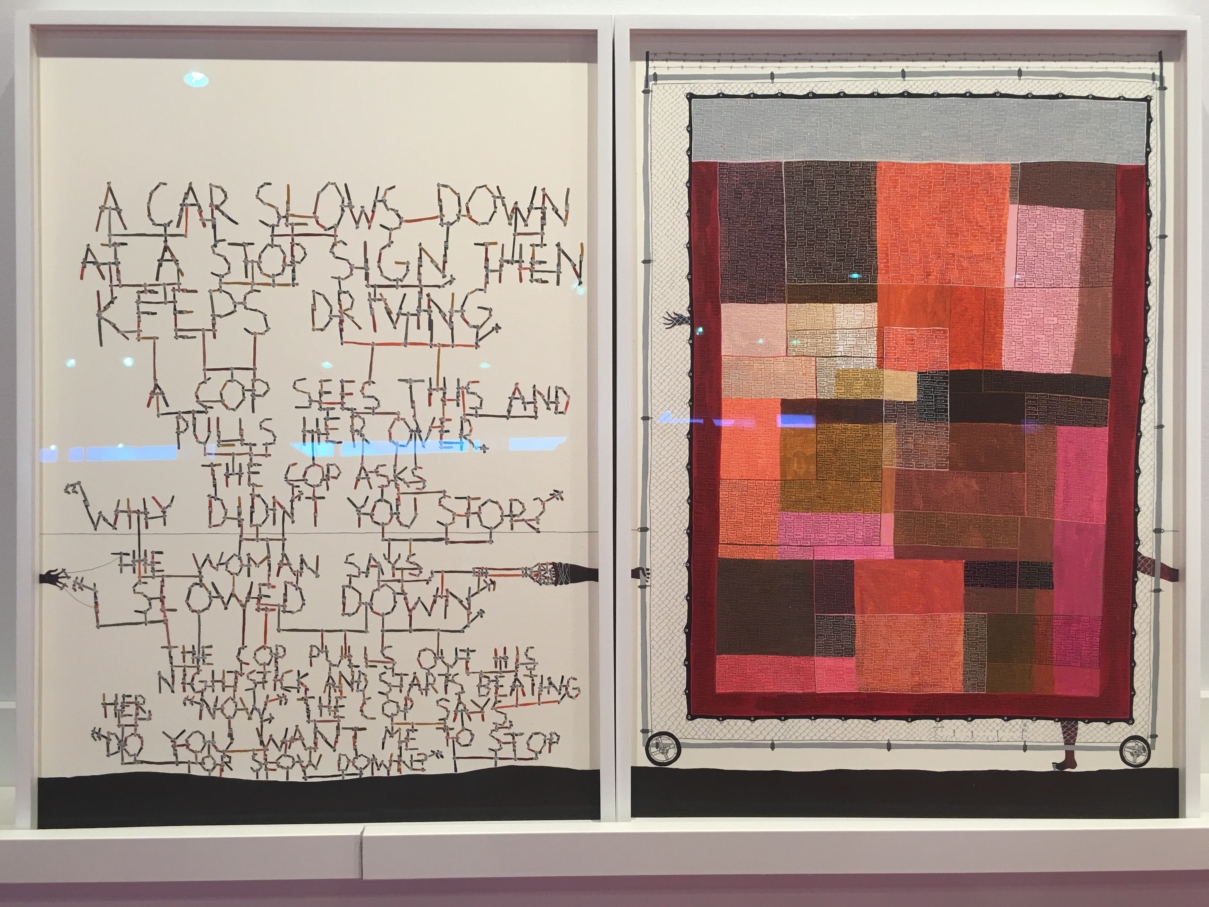 A CAR SLOWS DOWN
AT A STOP SIGN THEN
KEEPS DRIVING.
A COP SEES THIS AND
PULLS HER OVER.
THE COP ASKS
"WHY DIDN'T YOU STOP?"
THE WOMAN SAYS
"SLOWED DOWN"
THE COP PULLS OUT HIS
NIGHTSTICK AND STARTS BEATING
HER. "NOW" THE COP SAYS
"DO YOU WANT ME TO STOP
OR SLOW DOWN?"